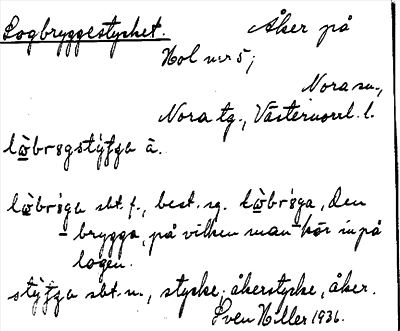 Logbryggestycket. Åker på
Hol nr 5;
Nora sn.,
Nora tg., Västernorrl. l.
lò̤brøgstýʃʃa ä.
lò̤brı̀ga sbt. f., best. sg. lò̤brı̀ga, den
brygga, på vilken man kör in på
logen.
stýʃʃa sbt. n., stycke; åkerstycke, åker.
Sven Hiller 1936.